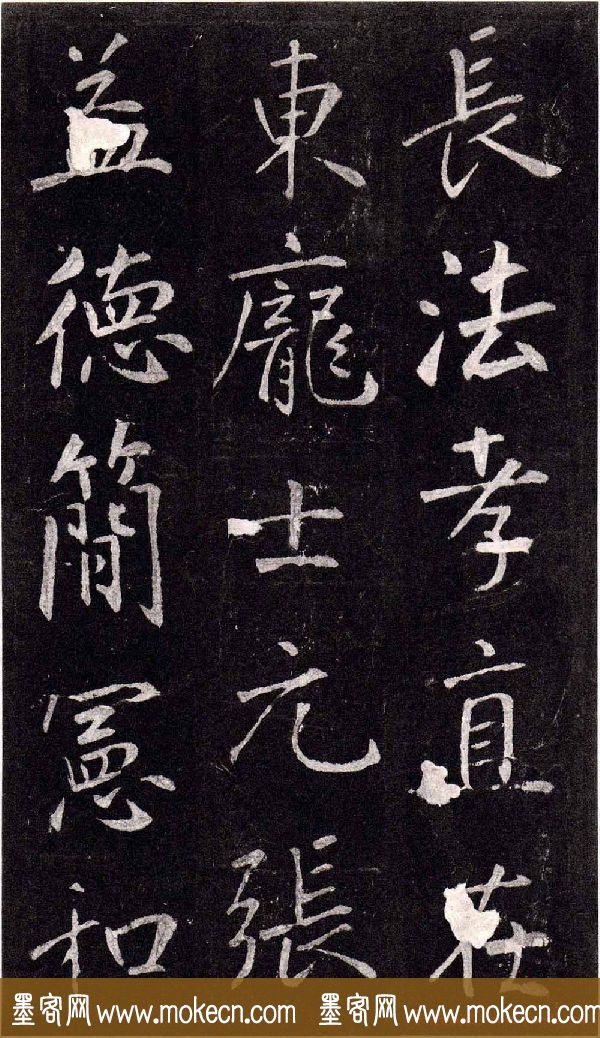 長法孝直在
東龐士元張
益德簡憲和
墨客网 www.mokecn.com 墨客网 www.mokecn.com